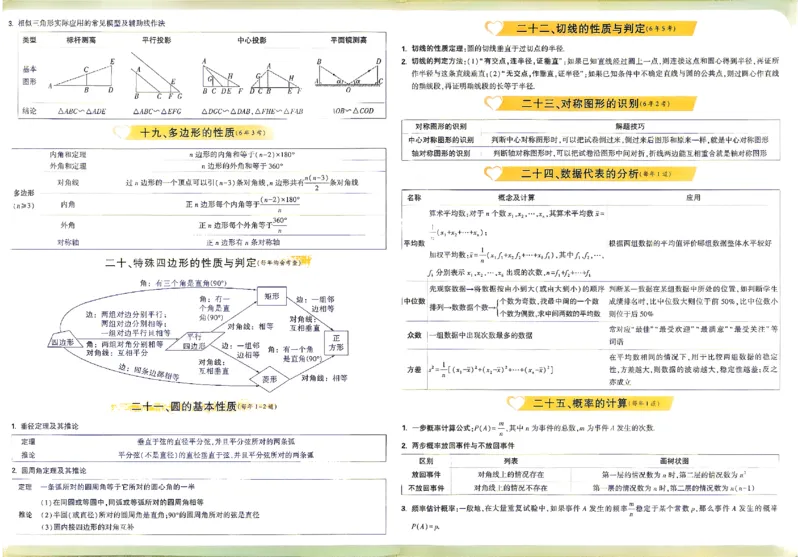 3. 相似三角形实际应用的常见模型及辅助线作法
类型 标杆测高 平行投影 中心投影 平面镜测高
基本
图形
结论 △ABC∽△ADE △ABC∽△EFG △DGC∽△DAB,△FHE∽△FAB △OB∽△COD
十九、多边形的性质(6年3考)
多边形
(n≥3)
内角和定理 n边形的内角和等于(n-2)×180°
外角和定理 n边形的外角和等于360°
对角线 过n边形的一个顶点可以引(n-3)条对角线,n边形共有n(n-3)/2条对角线
内角 正n边形每个内角等于(n-2)×180°/n
外角 正n边形每个外角等于360°/n
对称轴 正n边形有n条对称轴
二十、特殊四边形的性质与判定(每年均会考查)
角:有三个角是直角(90°)
边:两组对边分别平行;
两组对边分别相等;
一组对边平行且相等
角:两组对角分别相等
对角线:互相平分
四边形
平行
四边形
角:有一
个角是
直角(90°)
对角线:相等
矩形
边:一组邻
边相等
对角线:
互相垂直
正
方形
边:一组邻
边相等
对角线:
互相垂直
角:有一个角
是直角(90°)
对角线:相等
菱形
边:四条边都相等
二十一、圆的基本性质(每年1~2道)
1. 垂径定理及其推论
定理 垂直于弦的直径平分弦,并且平分弦所对的两条弧
推论 平分弦(不是直径)的直径垂直于弦,并且平分弦所对的两条弧
2. 圆周角定理及其推论
定理 一条弧所对的圆周角等于它所对的圆心角的一半
推论
(1)在同圆或等圆中,同弧或等弧所对的圆周角相等
(2)半圆(或直径)所对的圆周角是直角;90°的圆周角所对的弦是直径
(3)圆内接四边形的对角互补
二十二、切线的性质与判定(6年5考)
1. 切线的性质定理:圆的切线垂直于过切点的半径.
2. 切线的判定方法:(1)“有交点,连半径,证垂直”:如果已知直线经过圆上一点,则连接这点和圆心得到半径,再证所
作半径与这条直线垂直;(2)“无交点,作垂直,证半径”:如果已知条件中不确定直线与圆的公共点,则过圆心作直线
的垂线段,再证明垂线段的长等于半径.
二十三、对称图形的识别(6年2考)
对称图形的识别 解题技巧
中心对称图形的识别 判断中心对称图形时,可以把试卷倒过来,倒过来后图形和原来一样,就是中心对称图形
轴对称图形的识别 判断轴对称图形时,可以把试卷沿图形中间对折,折线两边能互相重合就是轴对称图形
二十四、数据代表的分析(每年1道)
名称 概念及计算 应用
平均数
算术平均数:对于n个数x₁,x₂,…,xₙ,其算术平均数x̄=
1/n(x₁+x₂+…+xₙ);
加权平均数:x̄=1/n(x₁f₁+x₂f₂+…+xₖfₖ),其中f₁,f₂,…,
fₖ分别表示x₁,x₂,…,xₖ出现的次数,n=f₁+f₂+…+fₖ
根据两组数据的平均值评价哪组数据整体水平较好
中位数
先观察数据→将数据按由小到大(或由大到小)的顺序
排列→数数据个数→{个数为奇数,找最中间的一个数
个数为偶数,求中间两数的平均数
判断某一数据在某组数据中所处的位置,如判断学生
成绩排名时,比中位数大则位于前50%,比中位数小
则位于后50%
众数 一组数据中出现次数最多的数据
常对应“最佳”“最受欢迎”“最满意”“最受关注”等
词语
方差 s²=1/n[(x₁-x̄)²+(x₂-x̄)²+…+(xₙ-x̄)²]
在平均数相同的情况下,用于比较两组数据的稳定
性,方差越大,则数据的波动越大,稳定性越差;反之
亦成立
二十五、概率的计算(每年1道)
1. 一步概率计算公式:P(A)=m/n,其中n为事件的总数,m为事件A发生的次数.
2. 两步概率放回事件与不放回事件
区别 列表 画树状图
放回事件 对角线上的情况存在 第一层的情况数为n时,第二层的情况数为n²
不放回事件 对角线上的情况不存在 第一层的情况数为n时,第二层的情况数为n(n-1)
3. 频率估计概率:一般地,在大量重复试验中,如果事件A发生的频率m/n稳定于某个常数p,那么事件A发生的概率
P(A)=p.